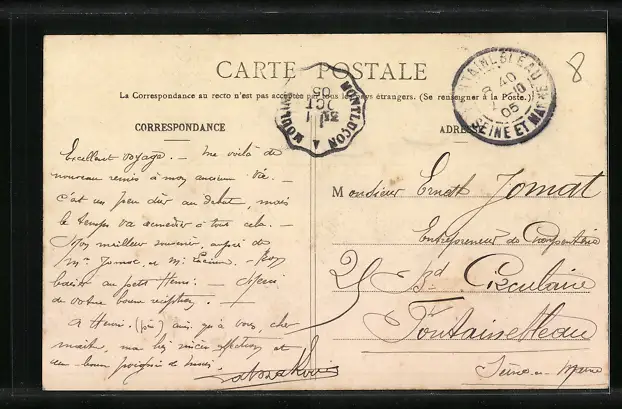 CARTE POSTALE
La Correspondance au recto n'est pas acceptée par tous les pays étrangers. (Se renseigner à la Poste.)
CORRESPONDANCE
ADRES
8
MONTLUÇON
OCT
05
FONTAINEBLEAU
8 40
10
05
SEINE ET MARNE
Excellent voyage. — Me voilà de
nouveau remis à mon ancienne vie. —
C'est un peu dur au début, mais
le temps va remédier à tous cela. —
Mon meilleur souvenir, auprès de
Mme Jomat, et M. — Bon
baiser au petit Henri. — Merci
de votre bonne réception. —
A Henri. ainsi qu'à vous, cher
ma affection et
une bonne poignée de mains.
Monsieur Ernest Jomat
Entrepreneur de Charpenterie
25 Bd Circulaire
Fontainebleau
Seine et Marne